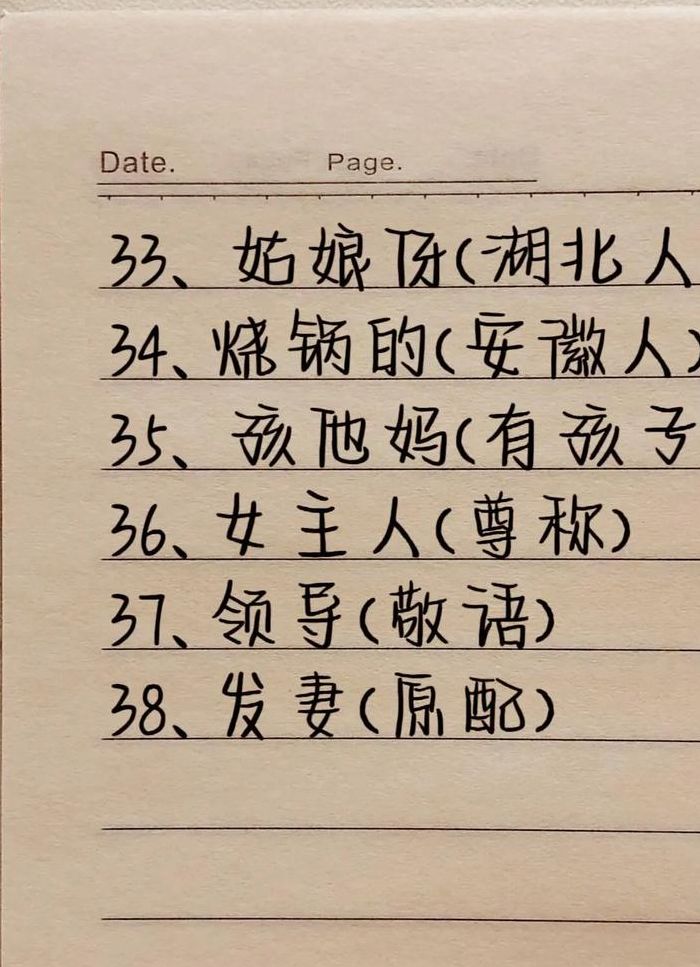 Date. Page.
33、姑娘伢(湖北人
34、烧锅的(安徽人)
35、孩他妈(有孩子
36、女主人(尊称)
37、领导(敬语)
38、发妻(原配)